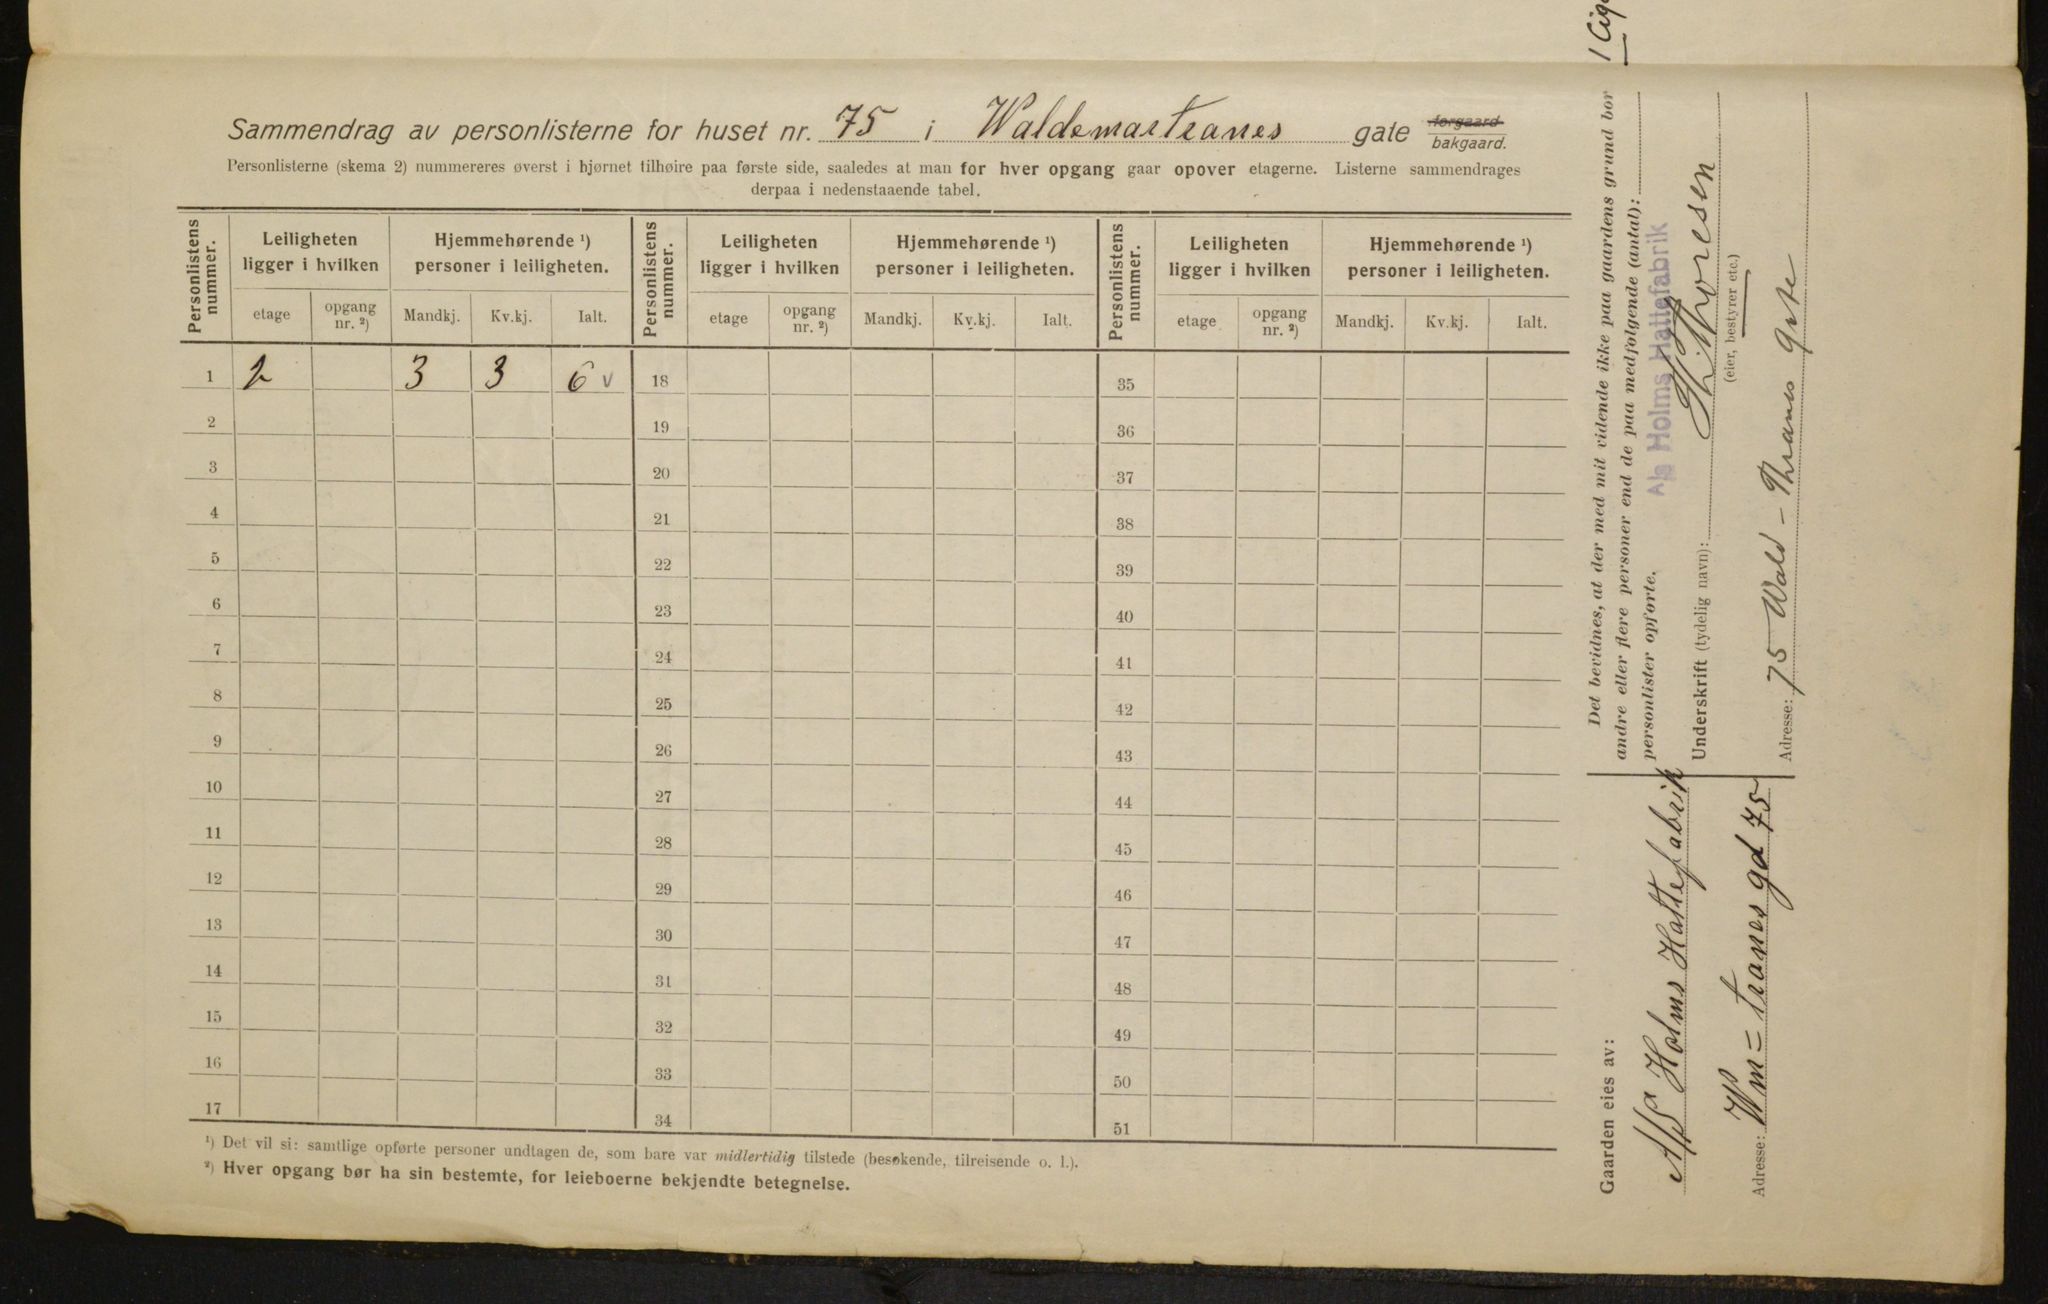 Sammendrag av personlisterne for huset nr. 75 i Waldemartranes gate forgaard bakgaard.
Personlisterne (skema 2) nummereres øverst i hjørnet tilhøire paa første side, saaledes at man for hver opgang gaar opover etagerne. Listerne sammendrages
derpaa i nedenstaaende tabel.
Personlistens nummer. Leiligheten ligger i hvilken Hjemmehørende ¹) personer i leiligheten. Personlistens nummer. Leiligheten ligger i hvilken Hjemmehørende ¹) personer i leiligheten. Personlistens nummer. Leiligheten ligger i hvilken Hjemmehørende ¹) personer i leiligheten.
etage opgang nr. ²) Mandkj. Kv.kj. Ialt. etage opgang nr. ²) Mandkj. Kv.kj. Ialt. etage opgang nr. ²) Mandkj. Kv.kj. Ialt.
1 2 3 3 6 v 18 35
2 19 36
3 20 37
4 21 38
5 22 39
6 23 40
7 24 41
8 25 42
9 26 43
10 27 44
11 28 45
12 29 46
13 30 47
14 31 48
15 32 49
16 33 50
17 34 51
¹) Det vil si: samtlige opførte personer undtagen de, som bare var midlertidig tilstede (besøkende, tilreisende o. l.).
²) Hver opgang bør ha sin bestemte, for leieboerne bekjendte betegnelse.
Gaarden eies av:
A/S Holms Hattefabrik
Adresse: Wm = tranes gd 75
Det bevidnes, at der med mit vidende ikke paa gaardens grund bor
andre eller flere personer end de paa medfølgende (antal):
personlister opførte.
A/S Holms Hattefabrik
Underskrift (tydelig navn): Thoresen
(eier, bestyrer etc.)
Adresse: 75 Wald - Thranes gate
1